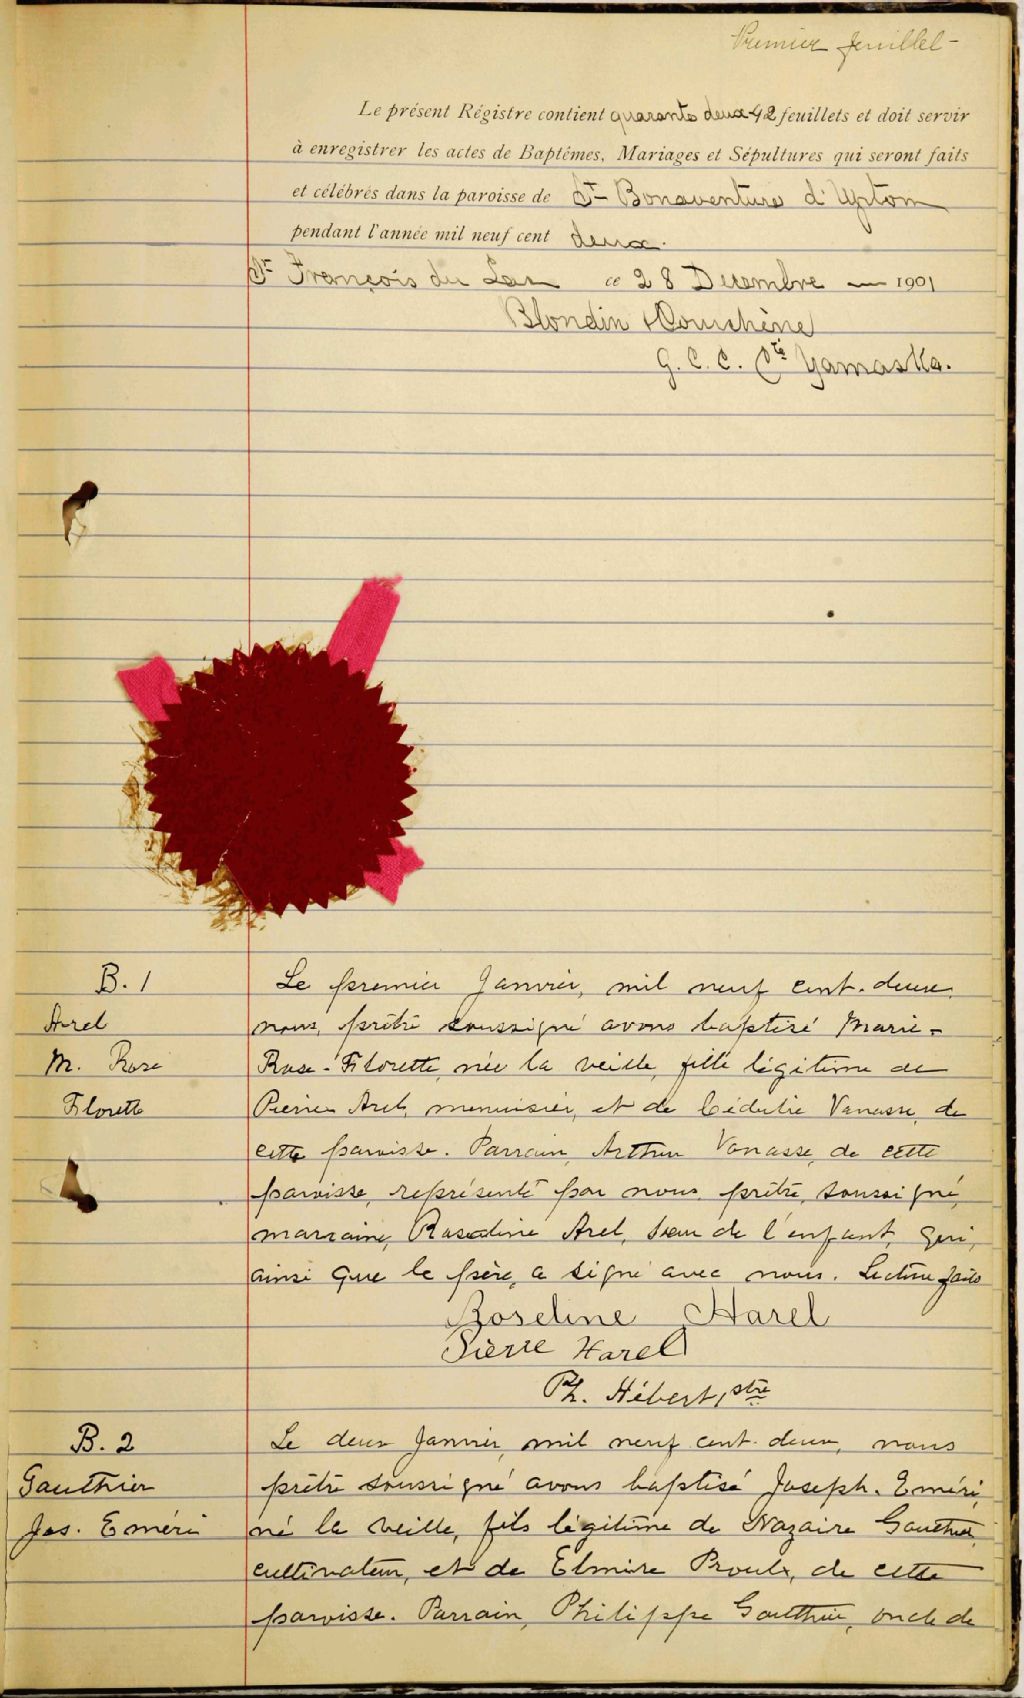 Premier feuillet -
Le présent Régistre contient quarante deux 42 feuillets et doit servir
à enregistrer les actes de Baptêmes, Mariages et Sépultures qui seront faits
et célébrés dans la paroisse de St Bonaventure d'Upton
pendant l'année mil neuf cent deux.
St François du Lac ce 28 Decembre — 1901
Blondin & Courchêne
G. C. C. Cté Yamaska.
B. 1
Arel
M. Rose
Florette
Le premier Janvier, mil neuf cent-deux,
nous, prêtre soussigné avons baptisé Marie-
Rose-Florette, née la veille, fille légitime de
Pierre Arel, menuisier, et de Cédulie Vanasse, de
cette paroisse. Parrain, Arthur Vanasse, de cette
paroisse, représenté par nous, prêtre, soussigné,
marraine, Roseline Arel, sœur de l'enfant, qui,
ainsi que le père, a signé avec nous. Lecture faite
Roseline Harel
Pierre Harel
Ph. Hébert, ptre
B. 2
Gauthier
Jos. Eméri
Le deux Janvier, mil neuf cent-deux, nous
prêtre soussigné avons baptisé Joseph-Eméri,
né la veille, fils légitime de Nazaire Gauthier,
cultivateur, et de Elmire Proulx, de cette
paroisse. Parrain, Philippe Gauthier, oncle de